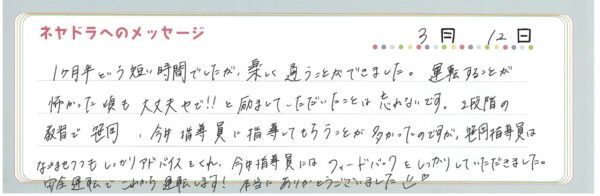 ネヤドラへのメッセージ
3月 12日
1ヶ月半という短い時間でしたが、楽しく通うことができました。運転することが
怖かった頃も大丈夫やで!!と励ましていただいたことは忘れないです。2段階の
教習で笹岡、今井指導員に指導してもらうことが多かったのですが、笹岡指導員は
なごませつつもしっかりアドバイスをくれ、今井指導員にはフィードバックをしっかりしていただきました。
安全運転でこれから運転します!本当にありがとうございました